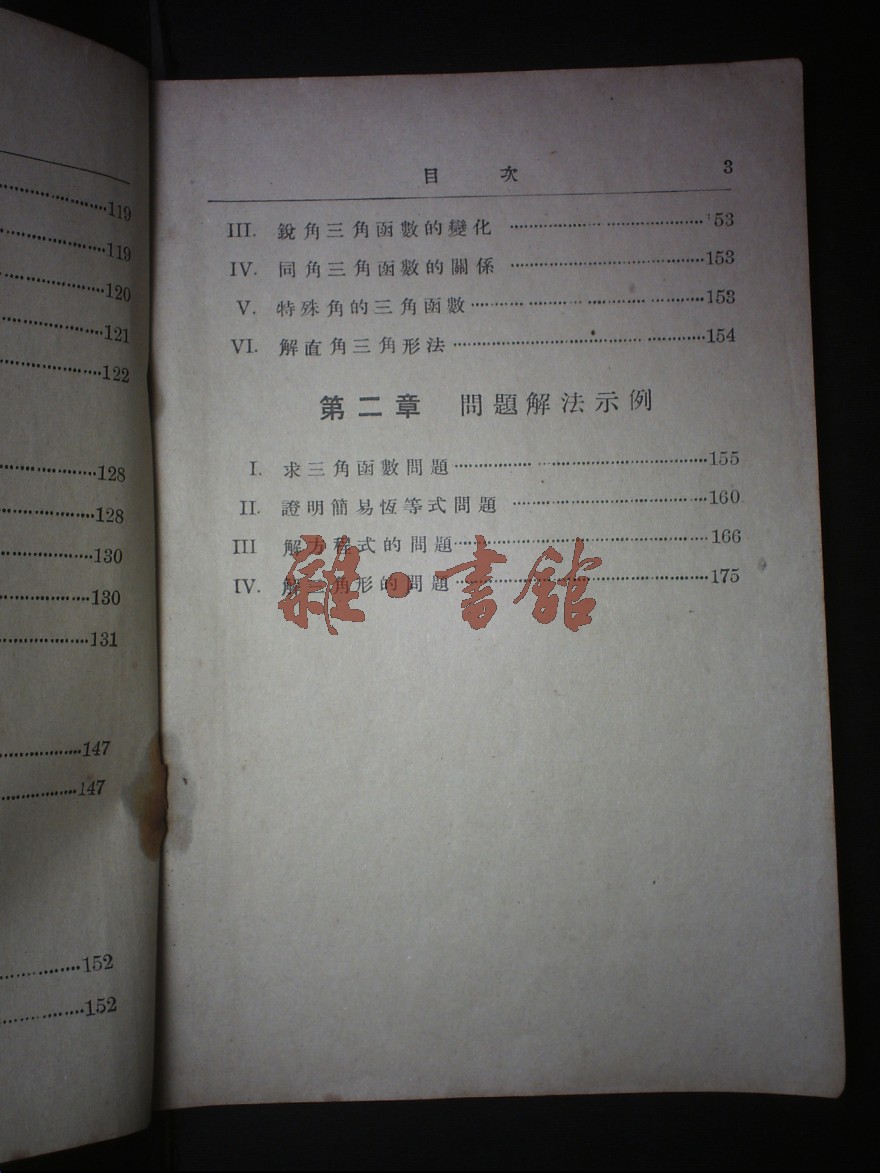 119
119
120
121
122
128
128
130
130
131
147
147
152
152
目 次 3
III. 銳角三角函數的變化 153
IV. 同角三角函數的關係 153
V. 特殊角的三角函數 153
VI. 解直角三角形法 154
第二章 問題解法示例
I. 求三角函數問題 155
II. 證明簡易恆等式問題 160
III 解方程式的問題 166
IV. 解三角形的問題 175
雜·書館